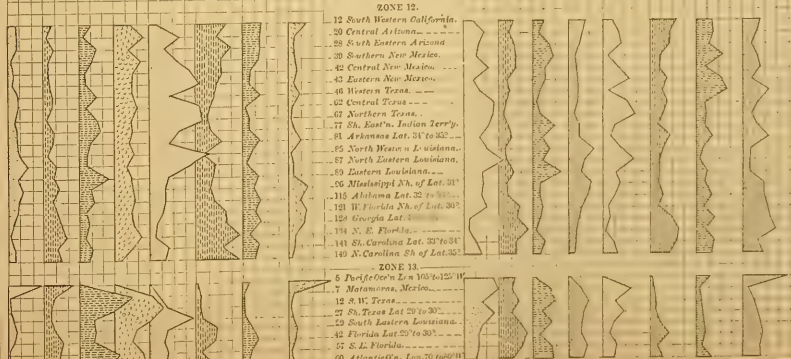 ZONE 12.
12 South Western California.
20 Central Arizona
28 South Eastern Arizona
39 Southern New Mexico.
42 Central New Mexico.
43 Eastern New Mexico.
46 Western Texas.
62 Central Texas
67 Northern Texas.
77 Sh. East'n. Indian Terr'y.
81 Arkansas Lat. 34° to 35°
85 North Western Louisiana.
87 North Eastern Louisiana.
89 Eastern Louisiana.
96 Mississippi Nh. of Lat. 31°
115 Alabama Lat. 32 to
121 W. Florida Nh. of Lat. 30°
Georgia Lat.
N. E. Florida.
141 Sh. Carolina Lat. 33° to 34°
149 N. Carolina Sh of Lat. 35°
ZONE 13.
5 Pacific Oce'n Lon 105° to 125° W
7 Matamoras, Mexico.
12 S. W. Texas
27 Sh. Texas Lat 29° to 30°
29 South Eastern Louisiana.
42 Florida Lat. 29° to 30°
57 S. E. Florida.
60 Lon. 70 to